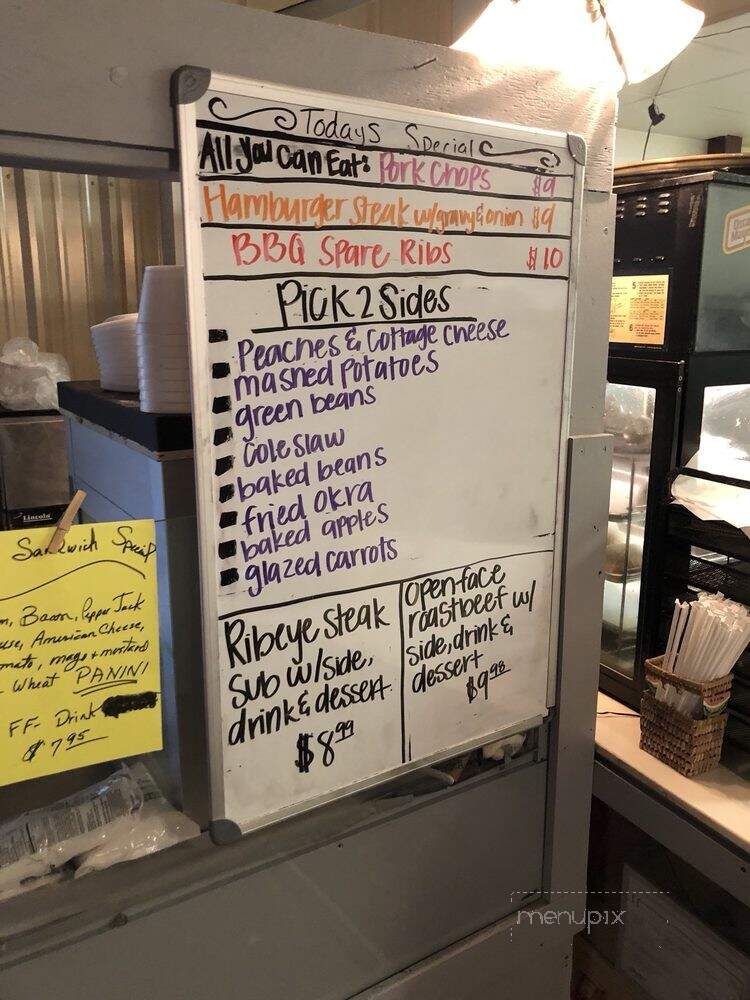 Todays Special
All You Can Eat: Pork Chops $9
Hamburger Steak w/gravy & onion $9
BBQ Spare Ribs $10
Pick 2 Sides
Peaches & Cottage cheese
mashed potatoes
green beans
Coleslaw
baked beans
fried okra
baked apples
glazed carrots
Ribeye Steak
Sub w/side,
drink & dessert
$8.99
Open-face
roastbeef w/
side, drink &
dessert
$9.98
Lincoln
Sandwich Special
Bacon, Pepper Jack
American Cheese,
mayo + mustard
Wheat PANINI
FF - Drink
$7.95
5
6
menupix